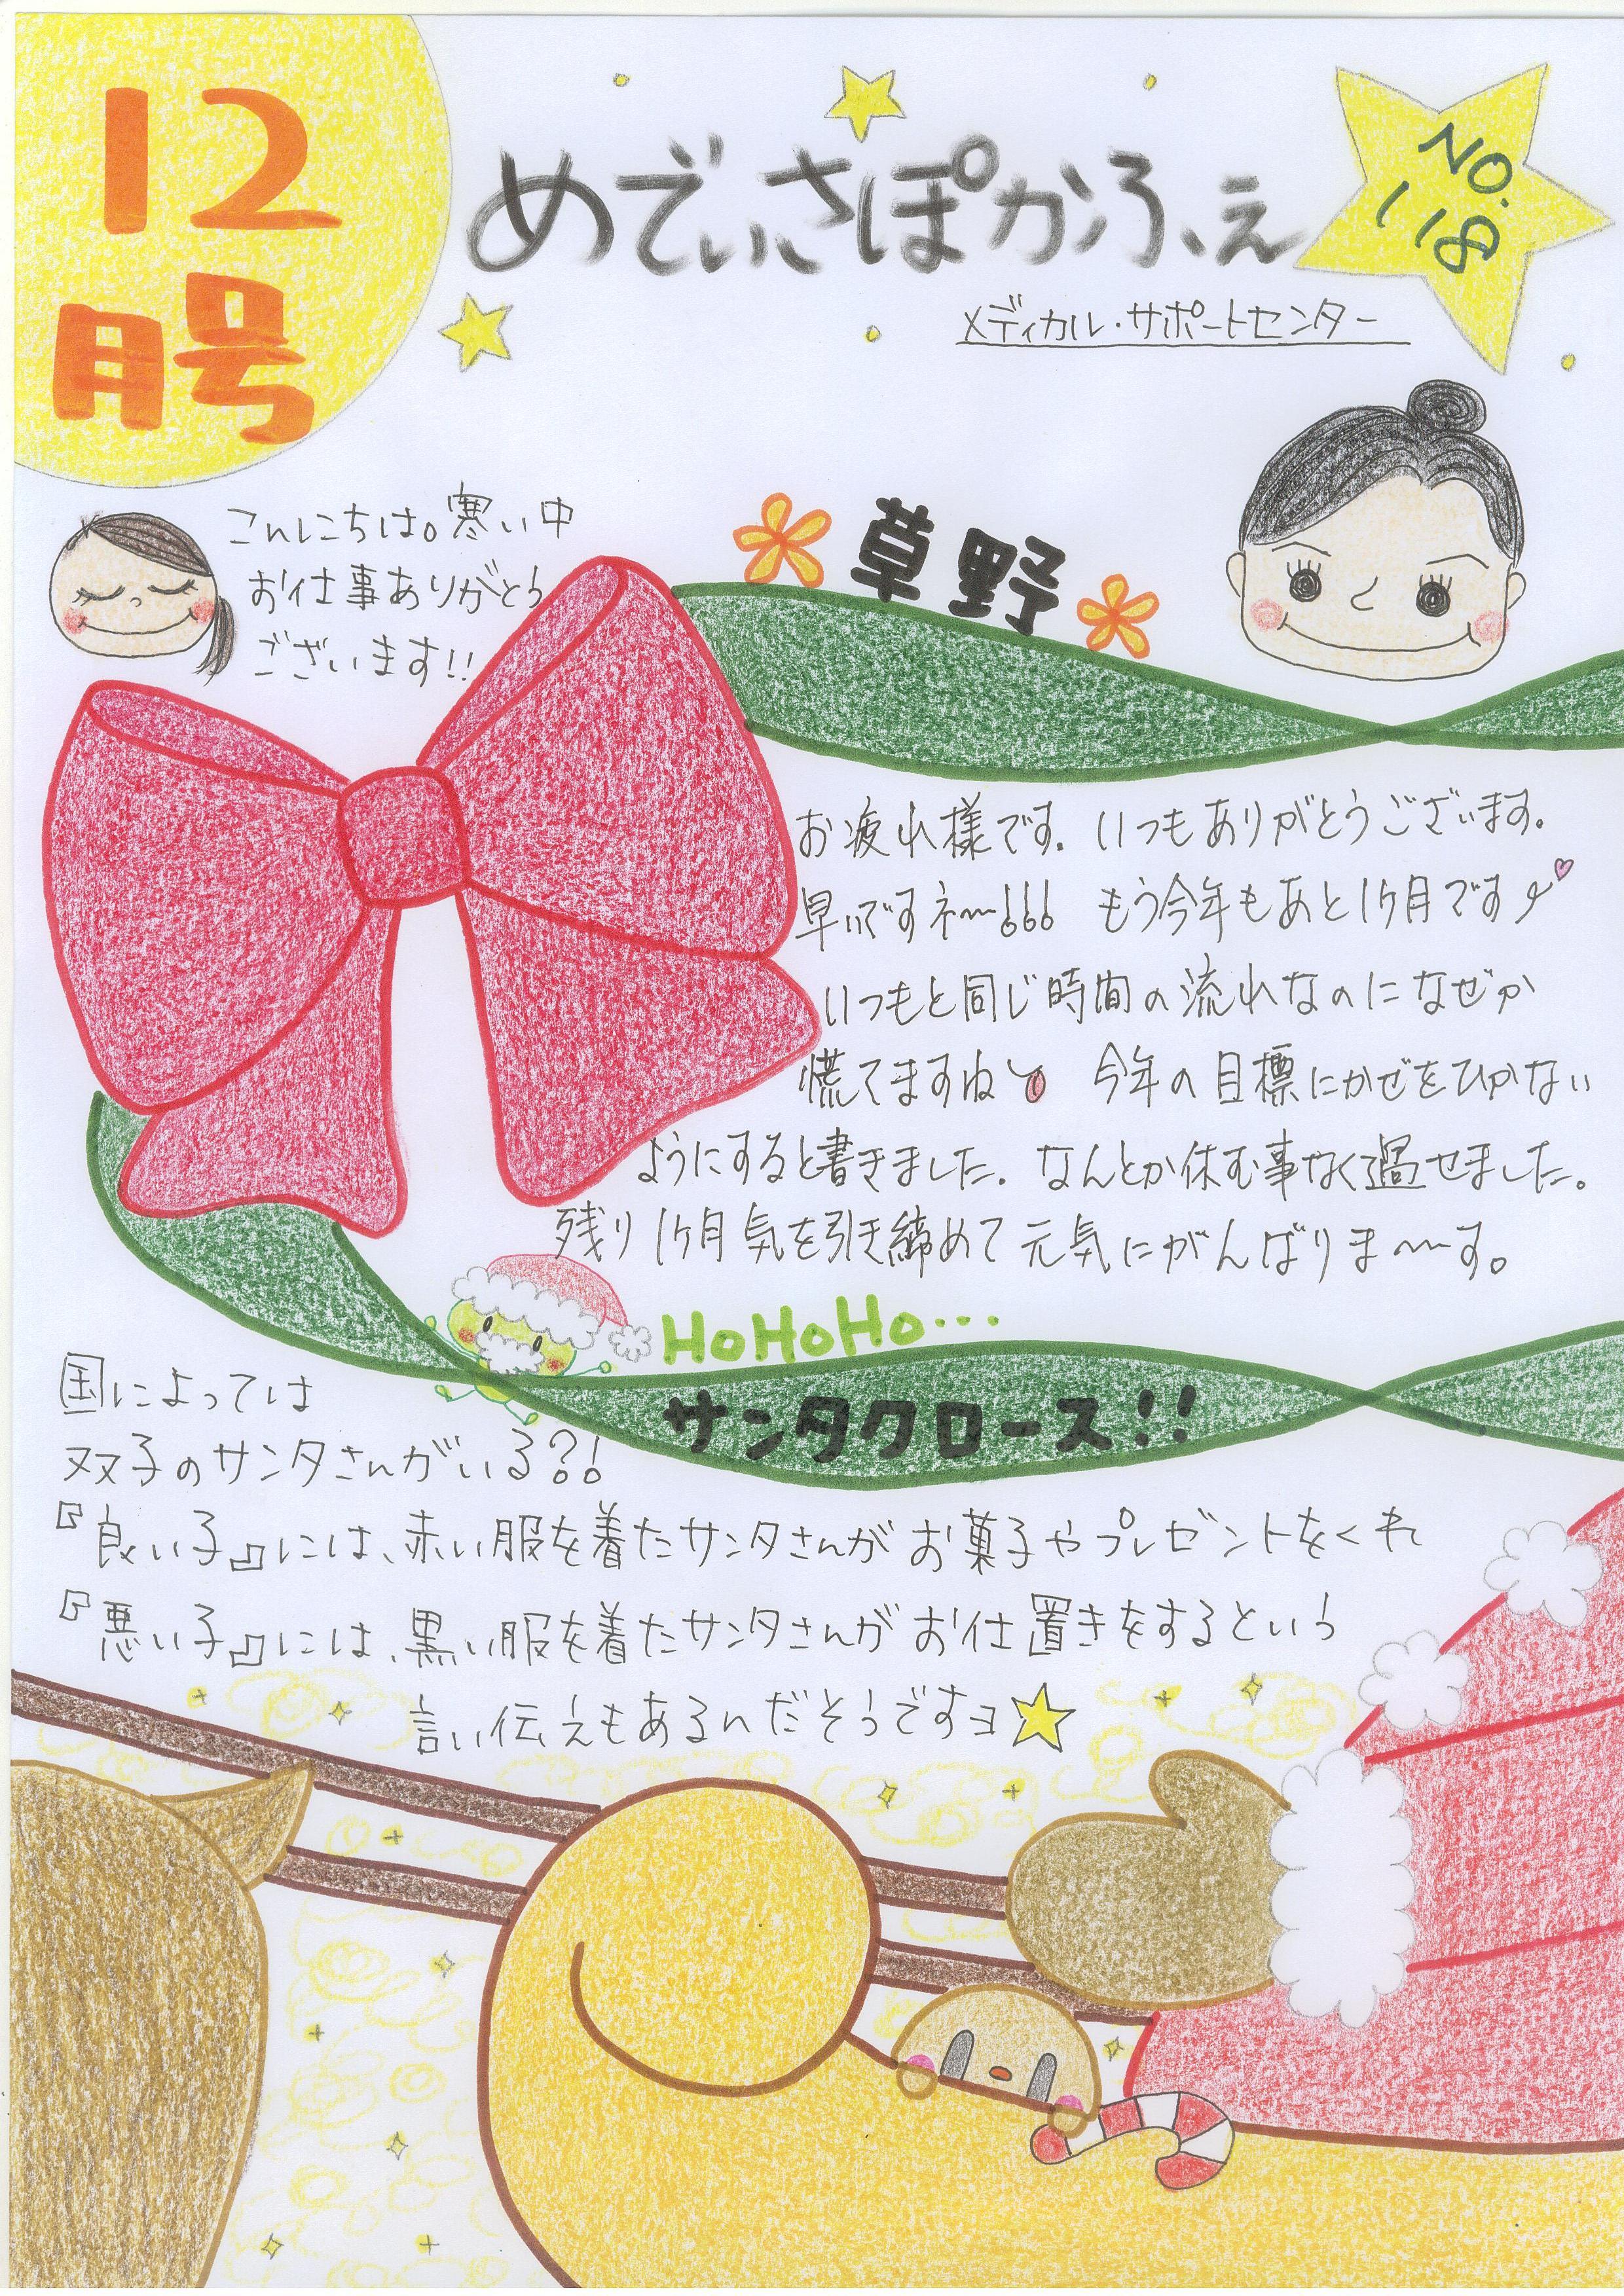 12
月号
めでぃさぽかふぇ
NO.
118
メディカル・サポートセンター
こんにちは。寒い中
お仕事ありがとう
ございます!!
草野
お疲れ様です。いつもありがとうございます。
早いですネ〜!!! もう今年もあと1ヶ月です
いつもと同じ時間の流れなのになぜか
慌てますね 今年の目標にかぜをひかない
ようにすると書きました。なんとか休む事なく過せました。
残り1ヶ月気を引き締めて元気にがんばりま〜す。
HoHoHo...
サンタクロース!!
国によっては
双子のサンタさんがいる?!
『良い子』には、赤い服を着たサンタさんがお菓子やプレゼントをくれ
『悪い子』には、黒い服を着たサンタさんがお仕置きをするという
言い伝えもあるんだそうですヨ